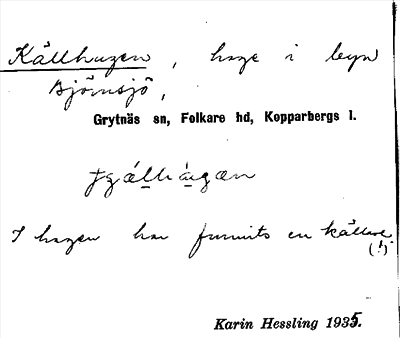 Källhagen, hage i byn
Björnsjö,
Grytnäs sn, Folkare hd, Kopparbergs l.
I hagen har funnits en källare
(!)
Karin Hessling 1935.